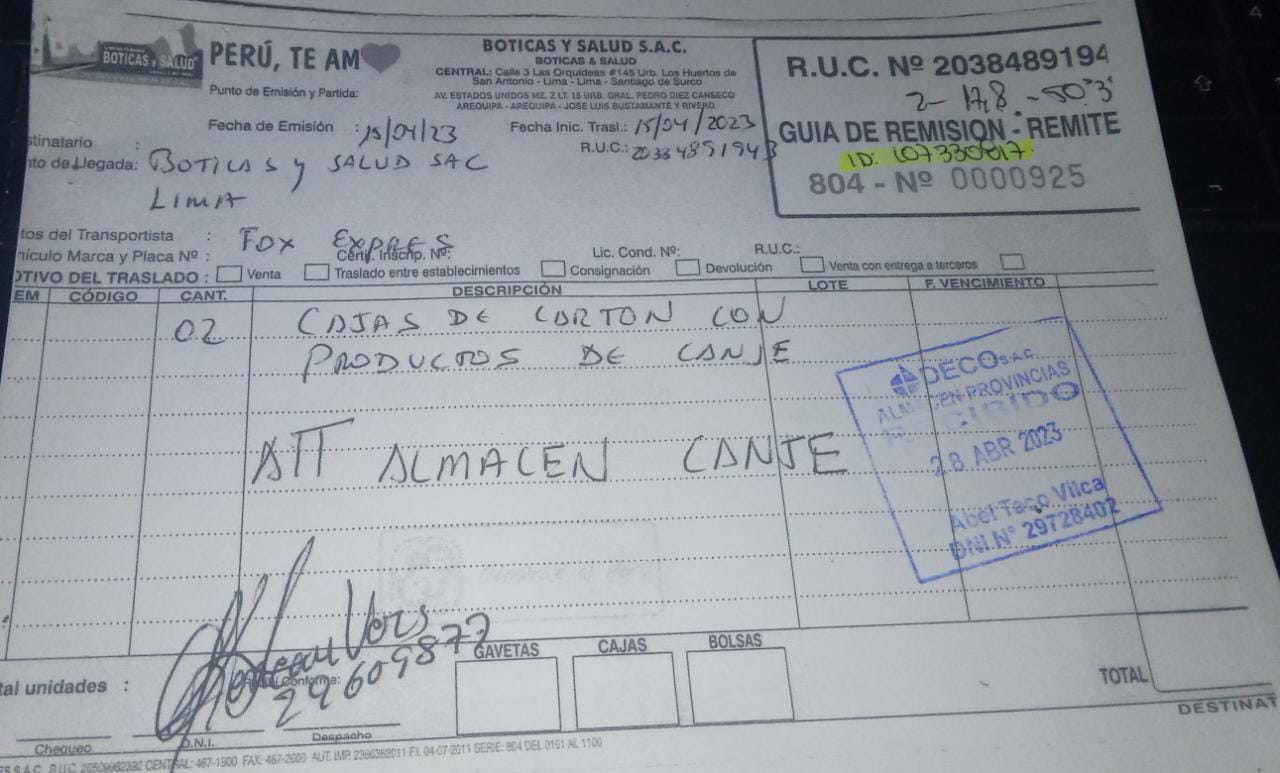 BOTICAS Y SALUD
PERÚ, TE AM
Punto de Emisión y Partida:
BOTICAS Y SALUD S.A.C.
BOTICAS & SALUD
CENTRAL: Calle 3 Las Orquídeas #145 Urb. Los Huertos de
San Antonio - Lima - Lima - Santiago de Surco
AV. ESTADOS UNIDOS MZ. 2 LT. 15 URB. GRAL. PEDRO DIEZ CANSECO
AREQUIPA - AREQUIPA - JOSE LUIS BUSTAMANTE Y RIVERO
R.U.C. Nº 2038489194
2-17,8.-50.3
GUIA DE REMISION - REMITE
ID: 107330817
804 - Nº 0000925
Fecha de Emisión : 15/04/23
Fecha Inic. Trasl.: 15/04/2023
stinatario :
R.U.C.: 20384891943
nto de Llegada: BOTICAS y SALUD SAC
LIMA
tos del Transportista : FOX EXPRES
hículo Marca y Placa Nº : Certif. Inscrip. Nº: Lic. Cond. Nº: R.U.C.:
OTIVO DEL TRASLADO : Venta Traslado entre establecimientos Consignación Devolución Venta con entrega a terceros
EM CÓDIGO CANT. DESCRIPCIÓN LOTE F. VENCIMIENTO
02 CAJAS DE CARTON CON
PRODUCTOS DE CANJE
ATT ALMACEN CANJE
DECO S.A.C.
ALMACEN-PROVINCIAS
RECIBIDO
28 ABR 2023
Abel Taco Vilca
DNI N° 29728402
29609877
Conforme:
GAVETAS CAJAS BOLSAS
tal unidades :
TOTAL
DESTINAT
Chequeo D.N.I. Despacho
ES S.A.C. R.U.C. 20509962392 CENTRAL: 467-1900 FAX: 467-2600 AUT. IMP. 2386352011 F.I. 04-07-2011 SERIE: 804 DEL 0101 AL 1100